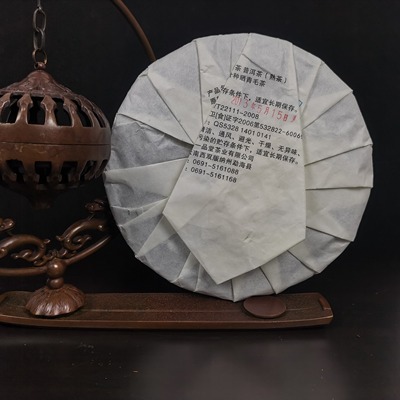 茶 普洱茶（熟茶）
种晒青毛茶
产品
存条件下，适宜长期保存。
2013年05月15日
/T22111-2008
卫(食)证字2000第532822-6006
QS5328 1401 0141
清洁、通风、避光、干燥、无异味、
污染的贮存条件下，适宜长期保存。
一品堂茶业有限公司
南西双版纳州勐海县
: 0691-5161088
: 0691-5161168